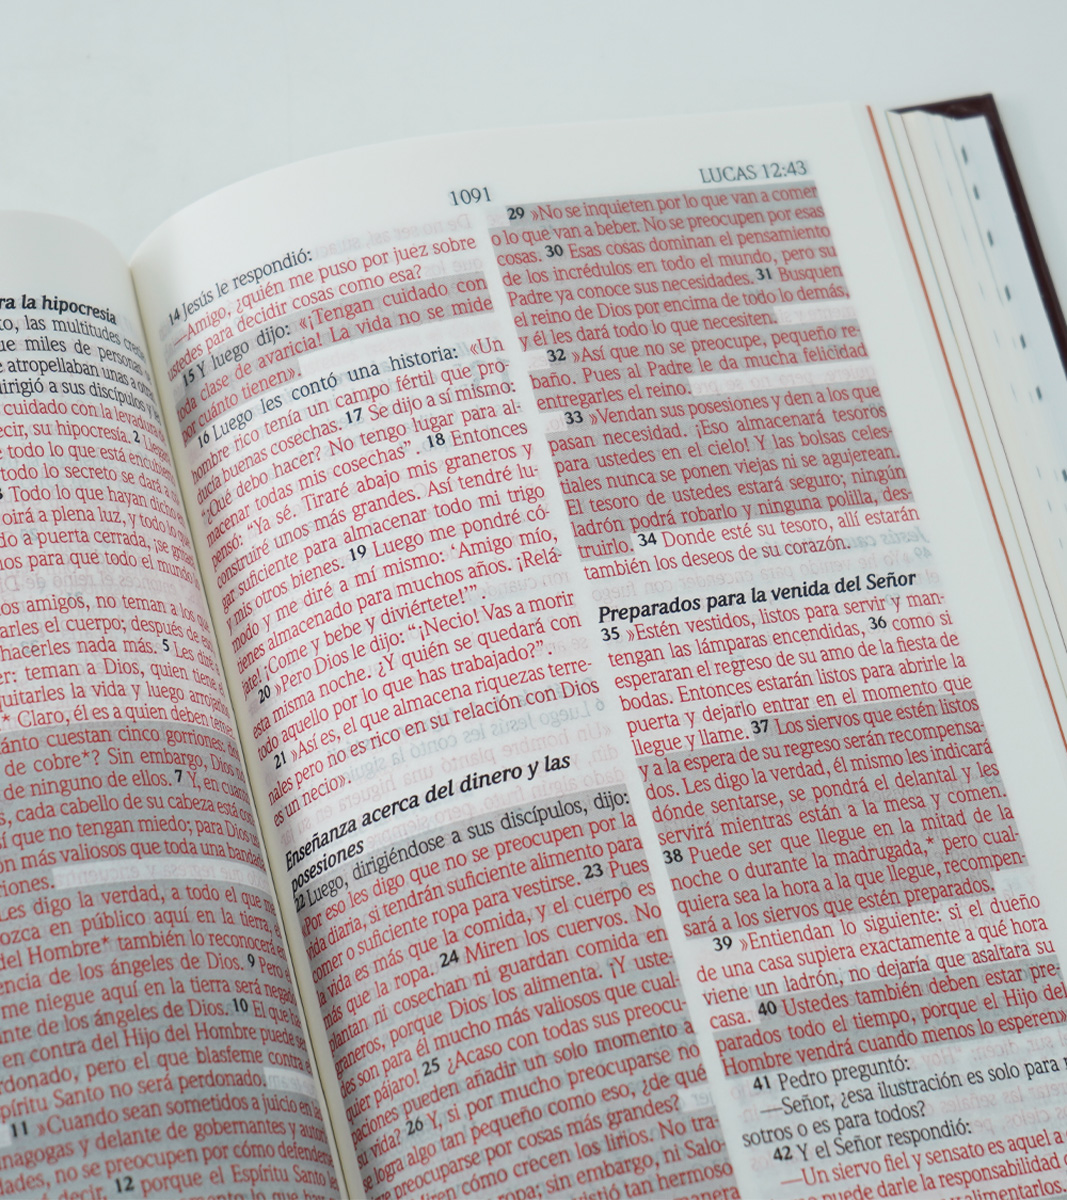 ra la hipocresia
to, las multitudes
ue miles de personas
e atropellaban unas a otras
dirigió a sus discípulos y les
cuidado con la levadura
ecir, su hipocresía. 2
e todo lo que está
todo lo secreto se dará a
Todo lo que hayan dicho en
oirá a plena luz, y todo lo
do a puerta cerrada, ¡se
ios para que todo el mundo
los amigos, no teman a los que
arles el cuerpo; después de
hacerles nada más. 5 Les diré a
er: teman a Dios, quien tiene el
uitarles la vida y luego arrojarlos
* Claro, él es a quien deben temer.
ánto cuestan cinco gorriones:
de cobre*? Sin embargo, Dios no
de ninguno de ellos. 7 Y, en cuanto
s, cada cabello de su cabeza está
sí que no tengan miedo; para Dios
on más valiosos que toda una bandada
riones.
Les digo la verdad, a todo el que me
ozca en público aquí en la tierra,
del Hombre* también lo reconocerá en
encia de los ángeles de Dios. 9 Pero
me niegue aquí en la tierra será negado
nte de los ángeles de Dios. 10 El que
en contra del Hijo del Hombre puede ser
rdonado, pero el que blasfeme contra
píritu Santo no será perdonado.
11 »Cuando sean sometidos a juicio en
inagogas y delante de gobernantes y
dades, no se preocupen por cómo defenderse
decir, 12 porque el Espíritu Santo
1091
14 Jesús le respondió:
—Amigo, ¿quién me puso por juez sobre
ustedes para decidir cosas como esa?
15 Y luego dijo: «¡Tengan cuidado con
toda clase de avaricia! La vida no se mide
por cuánto tienen».
16 Luego les contó una historia: «Un
hombre rico tenía un campo fértil que pro-
ducía buenas cosechas. 17 Se dijo a sí mismo:
“¿Qué debo hacer? No tengo lugar para al-
macenar todas mis cosechas”. 18 Entonces
pensó: “Ya sé. Tiraré abajo mis graneros y
construiré unos más grandes. Así tendré lu-
gar suficiente para almacenar todo mi trigo
y mis otros bienes. 19 Luego me pondré có-
modo y me diré a mí mismo: ‘Amigo mío,
tienes almacenado para muchos años. ¡Relá-
jate! ¡Come y bebe y diviértete!’”.
20 »Pero Dios le dijo: “¡Necio! Vas a morir
esta misma noche. ¿Y quién se quedará con
todo aquello por lo que has trabajado?”.
21 »Así es, el que almacena riquezas terre-
nales pero no es rico en su relación con Dios
es un necio».
Enseñanza acerca del dinero y las
posesiones
22 Luego, dirigiéndose a sus discípulos, dijo:
«Por eso les digo que no se preocupen por la
vida diaria, si tendrán suficiente alimento para
comer o suficiente ropa para vestirse. 23 Pues
la vida es más que la comida, y el cuerpo es
más que la ropa. 24 Miren los cuervos. No
plantan ni cosechan ni guardan comida en
graneros, porque Dios los alimenta. ¡Y uste-
des son para él mucho más valiosos que cual-
quier pájaro! 25 ¿Acaso con todas sus preocu-
paciones pueden añadir un solo momento a
su vida? 26 Y, si por mucho preocuparse no
se logra algo tan pequeño como eso, ¿de qué
preocuparse por cosas más grandes?
Miren cómo crecen los lirios. No tra-
ropa; sin embargo, ni Salo-
vistió tan hermoso
manera
LUCAS 12:43
29 »No se inquieten por lo que van a comer
o lo que van a beber. No se preocupen por esas
cosas. 30 Esas cosas dominan el pensamiento
de los incrédulos en todo el mundo, pero su
Padre ya conoce sus necesidades. 31 Busquen
el reino de Dios por encima de todo lo demás,
y él les dará todo lo que necesiten.
32 »Así que no se preocupe, pequeño re-
baño. Pues al Padre le da mucha felicidad
entregarles el reino.
33 »Vendan sus posesiones y den a los que
pasan necesidad. ¡Eso almacenará tesoros
para ustedes en el cielo! Y las bolsas celes-
tiales nunca se ponen viejas ni se agujerean.
El tesoro de ustedes estará seguro; ningún
ladrón podrá robarlo y ninguna polilla, des-
truirlo. 34 Donde esté su tesoro, allí estarán
también los deseos de su corazón.
Preparados para la venida del Señor
35 »Estén vestidos, listos para servir y man-
tengan las lámparas encendidas, 36 como si
esperaran el regreso de su amo de la fiesta de
bodas. Entonces estarán listos para abrirle la
puerta y dejarlo entrar en el momento que
llegue y llame. 37 Los siervos que estén listos
y a la espera de su regreso serán recompensa-
dos. Les digo la verdad, él mismo les indicará
dónde sentarse, se pondrá el delantal y les
servirá mientras están a la mesa y comen.
38 Puede ser que llegue en la mitad de la
noche o durante la madrugada,* pero cual-
quiera sea la hora a la que llegue, recompen-
sará a los siervos que estén preparados.
39 »Entiendan lo siguiente: si el dueño
de una casa supiera exactamente a qué hora
viene un ladrón, no dejaría que asaltara su
casa. 40 Ustedes también deben estar pre-
parados todo el tiempo, porque el Hijo del
Hombre vendrá cuando menos lo esperen».
41 Pedro preguntó:
—Señor, ¿esa ilustración es solo para
sotros o es para todos?
42 Y el Señor respondió:
—Un siervo fiel y sensato es aquel a
puede darle la responsabilidad